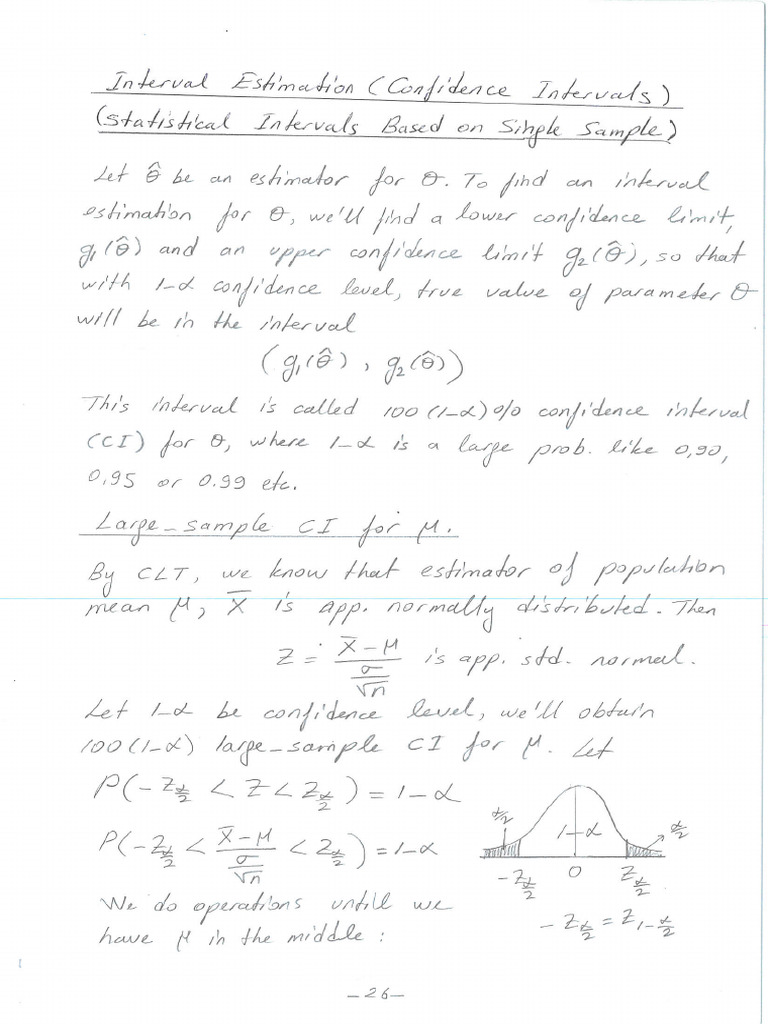 Interval Estimation (Confidence Intervals)
(Statistical Intervals Based on Single Sample)
Let θ̂ be an estimator for θ. To find an interval
estimation for θ, we'll find a lower confidence limit,
g₁(θ̂) and an upper confidence limit g₂(θ̂), so that
with 1-α confidence level, true value of parameter θ
will be in the interval
(g₁(θ̂), g₂(θ̂))
This interval is called 100(1-α)% confidence interval
(CI) for θ, where 1-α is a large prob. like 0,90,
0,95 or 0.99 etc.
Large-sample CI for μ.
By CLT, we know that estimator of population
mean μ, X̄ is app. normally distributed. Then
Z = (X̄-μ)/(σ/√n) is app. std. normal.
Let 1-α be confidence level, we'll obtain
100(1-α) large-sample CI for μ. Let
P(-Z_{α/2} < Z < Z_{α/2}) = 1-α
P(-Z_{α/2} < (X̄-μ)/(σ/√n) < Z_{α/2}) = 1-α
α/2 1-α α/2
-Z_{α/2} 0 Z_{α/2}
-Z_{α/2} = Z_{1-α/2}
We do operations untill we
have μ in the middle :
-26-